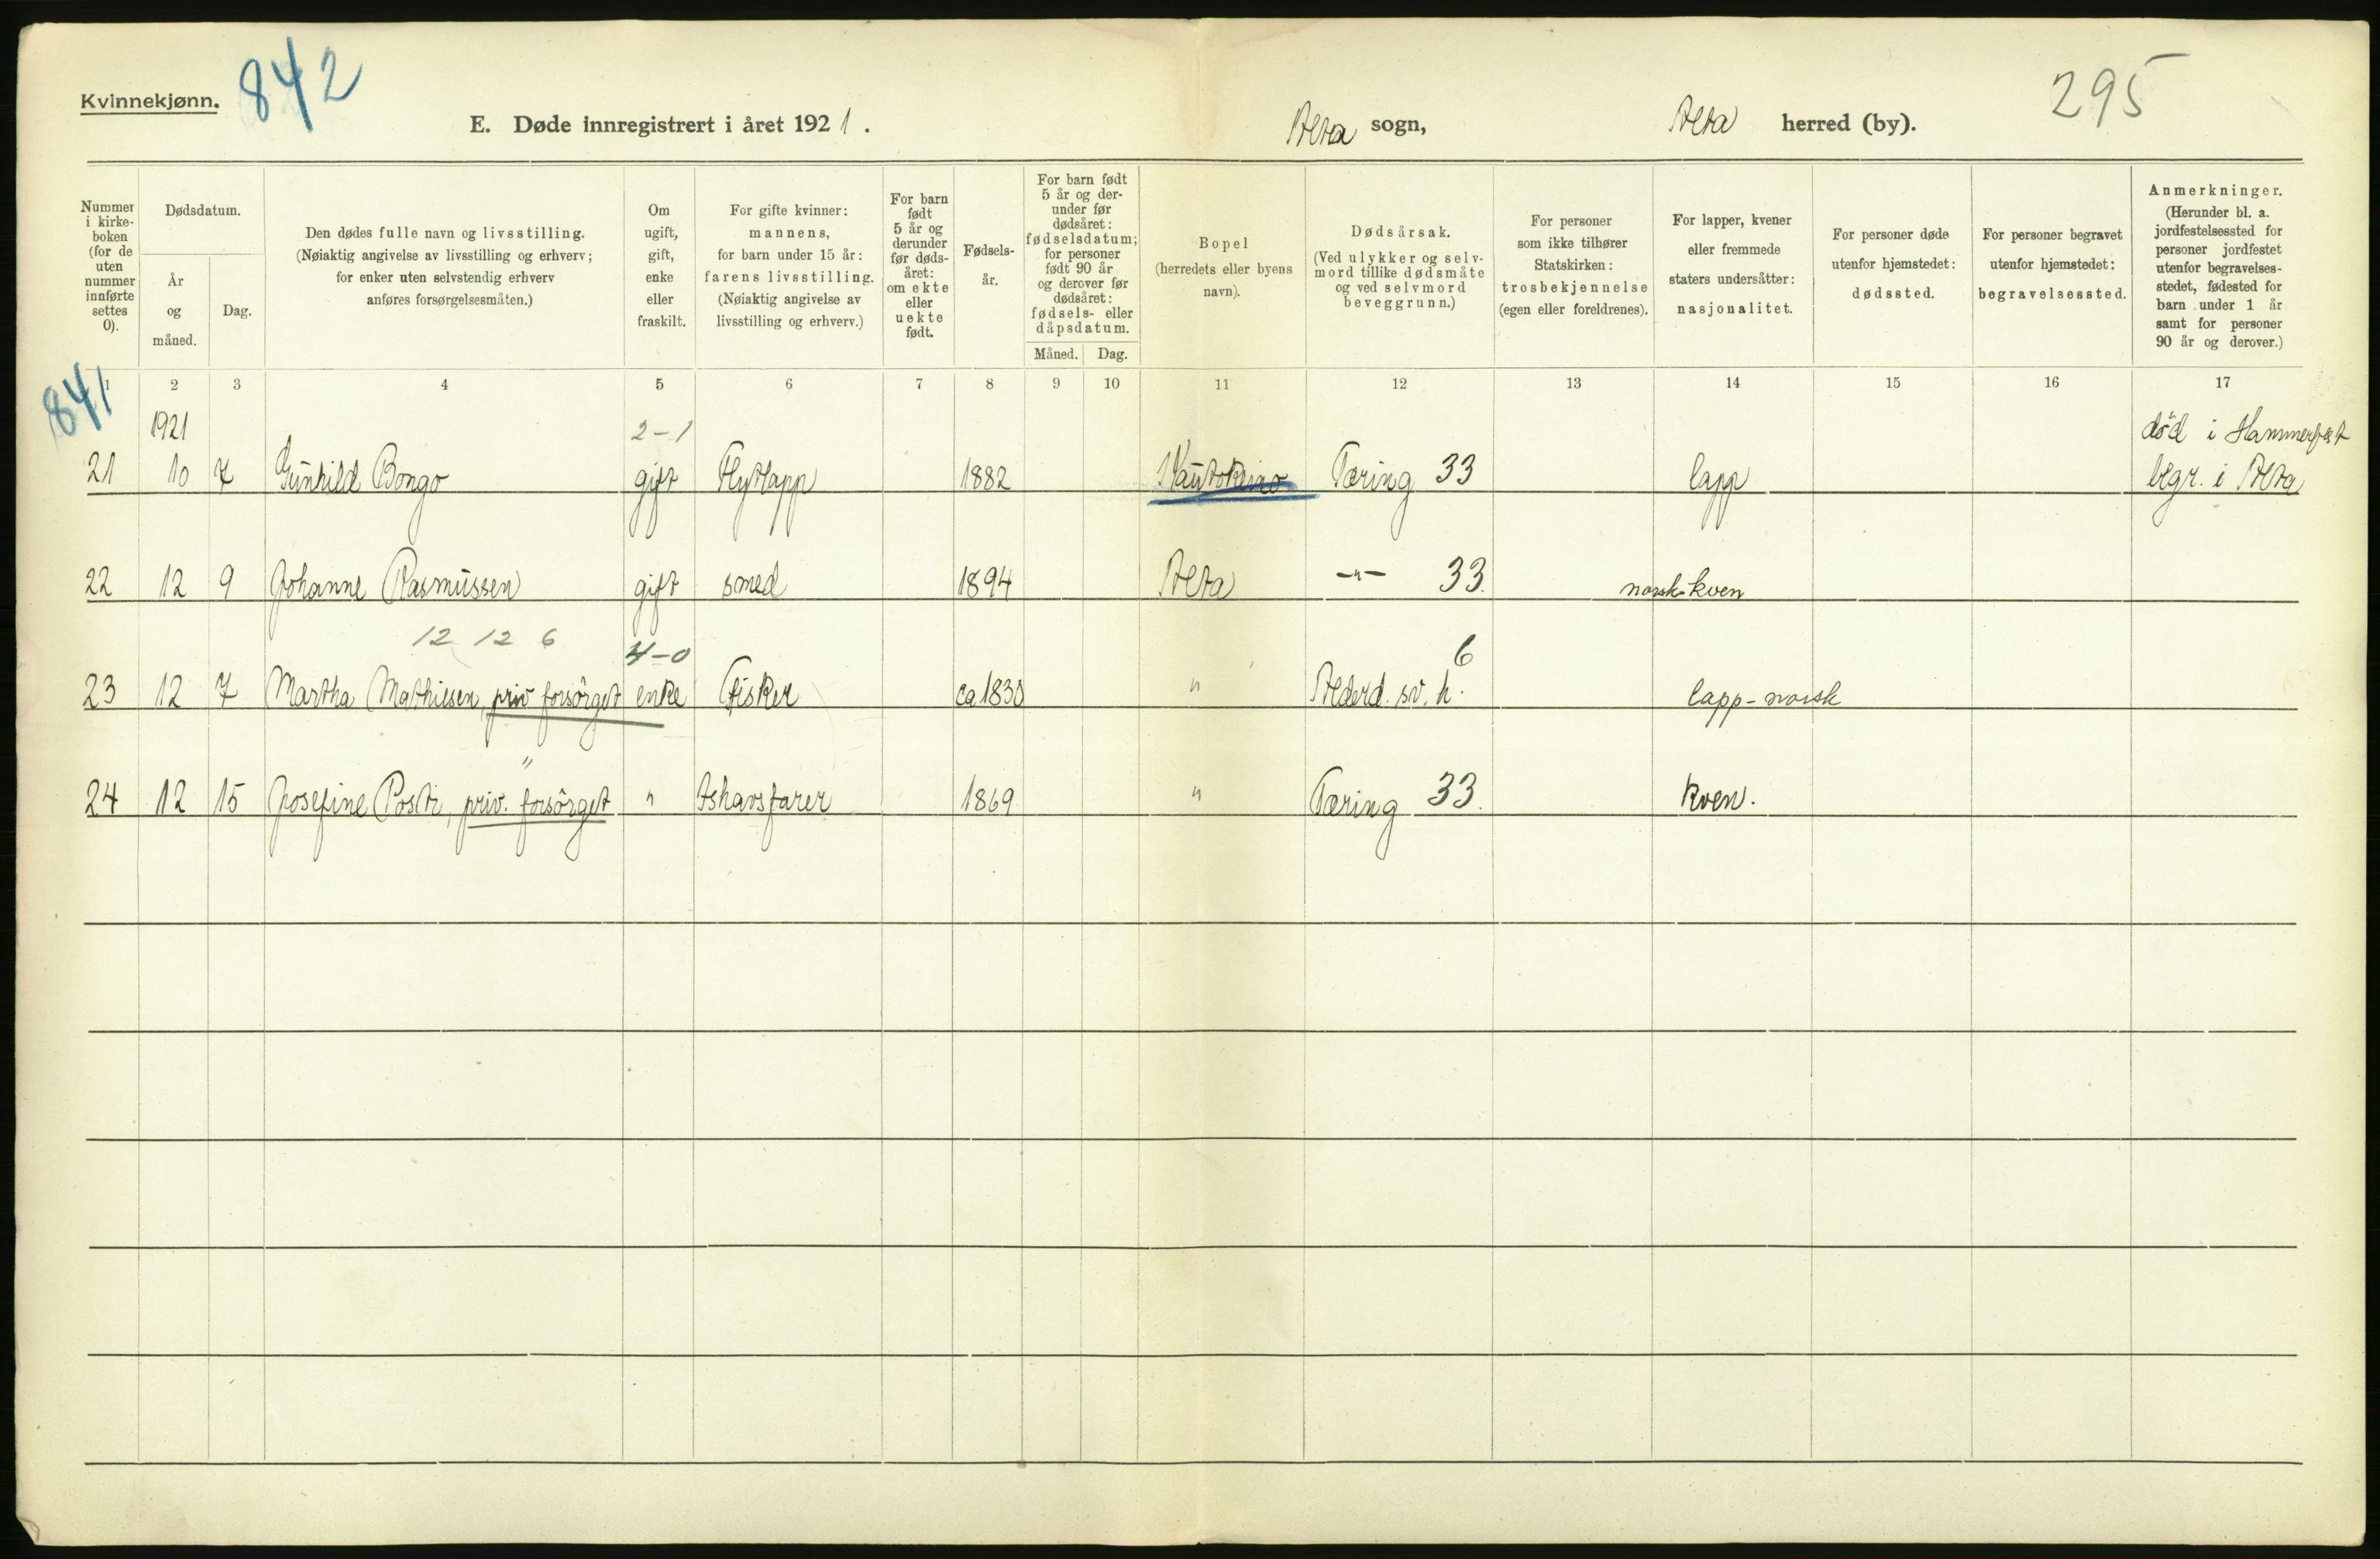 Kvinnekjønn.
842
E. Døde innregistrert i året 1921.
Alta sogn,
Alta herred (by).
295
Nummer i kirke-boken (for de uten nummer innførte settes 0).
Dødsdatum.
År og måned.
Dag.
Den dødes fulle navn og livsstilling.
(Nøiaktig angivelse av livsstilling og erhverv;
for enker uten selvstendig erhverv
anføres forsørgelsesmåten.)
Om ugift, gift, enke eller fraskilt.
For gifte kvinner: mannens,
for barn under 15 år:
farens livsstilling.
(Nøiaktig angivelse av
livsstilling og erhverv.)
For barn født 5 år og derunder før døds-året: om ekte eller uekte født.
Fødsels-år.
For barn født 5 år og der-under før dødsåret: fødselsdatum; for personer født 90 år og derover før dødsåret: fødsels- eller dåpsdatum.
Måned. Dag.
Bopel
(herredets eller byens navn).
Dødsårsak.
(Ved ulykker og selv-mord tillike dødsmåte og ved selvmord beveggrunn.)
For personer som ikke tilhører Statskirken:
trosbekjennelse
(egen eller foreldrenes).
For lapper, kvener eller fremmede staters undersåtter:
nasjonalitet.
For personer døde utenfor hjemstedet:
dødssted.
For personer begravet utenfor hjemstedet:
begravelsessted.
Anmerkninger.
(Herunder bl. a. jordfestelsessted for personer jordfestet utenfor begravelses-stedet, fødested for barn under 1 år samt for personer 90 år og derover.)
841
1 2 3 4 5 6 7 8 9 10 11 12 13 14 15 16 17
1921 2-1 død i Hammerfest
21 10 7 Gunhild Bongo gift Flytlapp 1882 Kautokeino Tæring 33 lapp begr. i Alta
22 12 9 Johanne Rasmussen gift smed 1894 Alta -"- 33. norsk-kven
12 12 6 4-0 6
23 12 7 Martha Mathisen, priv forsørget enke Fisker ca 1830 " Alderd. sv. h. lapp-norsk
"
24 12 15 Josefine Posti, priv. forsørget " Ishavsfarer 1869 " Tæring 33. kven.